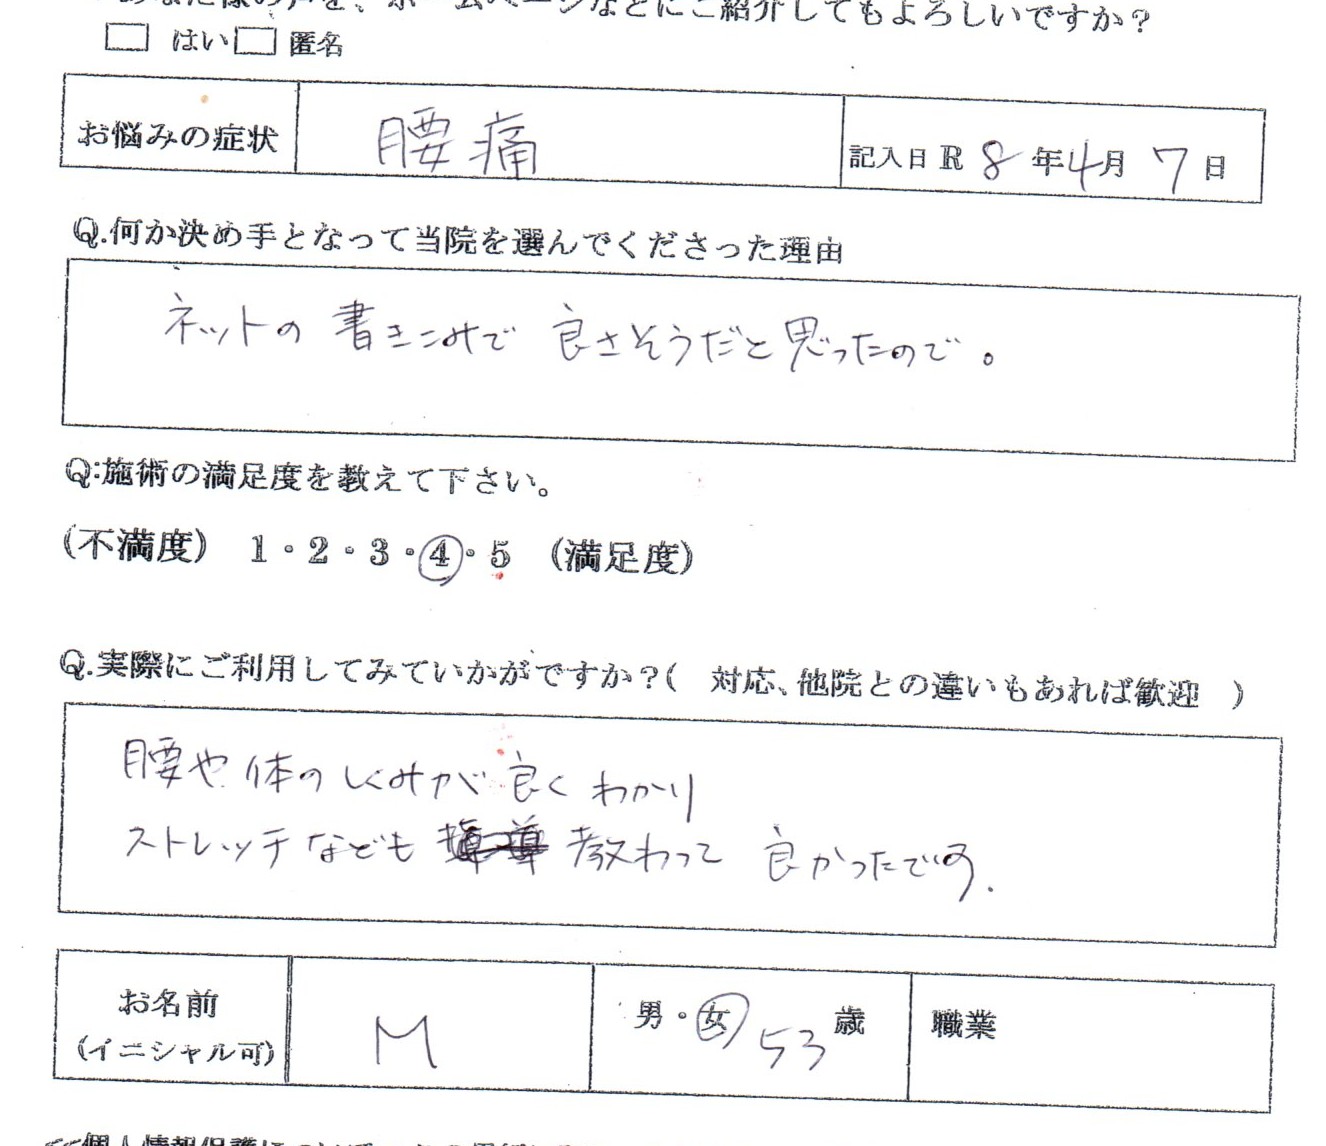 あなた様の声を、ホームページなどにご紹介してもよろしいですか？
はい 匿名
お悩みの症状 腰痛 記入日 R 8 年 4 月 7 日
Q.何か決め手となって当院を選んでくださった理由
ネットの書きこみで良さそうだと思ったので。
Q:施術の満足度を教えて下さい。
（不満度） 1・2・3・4・5 （満足度）
Q.実際にご利用してみていかがですか？( 対応、他院との違いもあれば歓迎 )
腰や体のしくみが良くわかり
ストレッチなども 教わって 良かったです.
お名前 M 男・女 53 歳 職業
（イニシャル可）